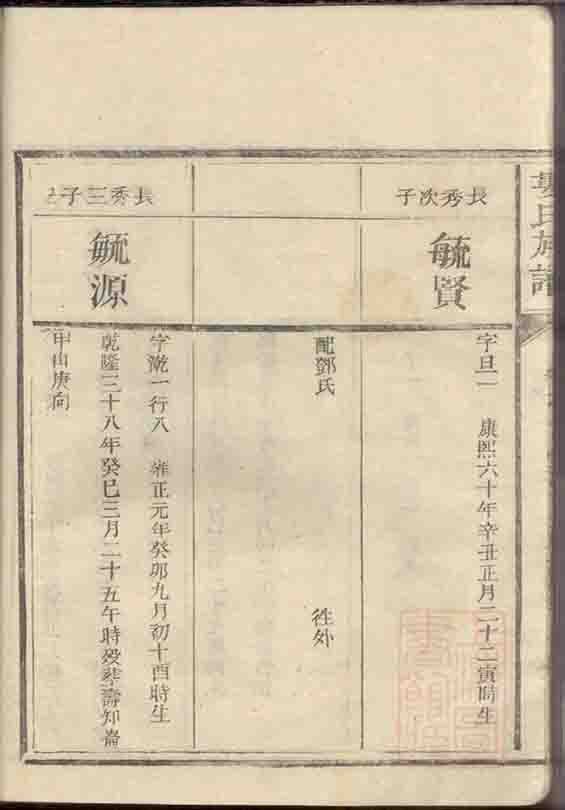 氏族譜
長秀次子
毓賢
字旦一 康熙六十年辛丑正月二十二寅時生
配鄧氏 徃外
長秀三子
毓源
字㴾一行八 雍正元年癸卯九月初十酉時生
乾隆三十八年癸巳三月二十五午時歿葬壽知崙
甲山庚向